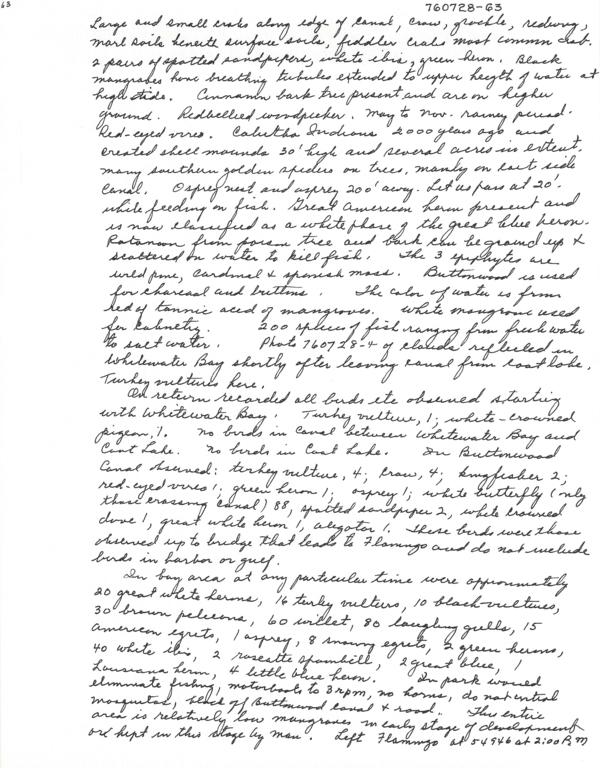 63
760728-63
Large and small crabs along edge of canal, crow, grackle, redwing,
marl soils beneath surface soils, fiddler crabs most common crab.
2 pairs of spotted sandpipers, white ibis, green heron. Black
mangroves have breathing tubules extended to upper heigth of water at
high tide. Cinnamon bark tree present and are on higher
ground. Redbellied woodpecker. May to Nov. rainey period.
Red-eyed vireo. Indians 2000 years ago and
created shell mounds 30' high and several acres in extent.
many southern golden spiders on trees, mainly on east side
canal. Osprey nest and osprey 200' away. Let us pass at 20'
while feeding on fish. Great American heron present and
is now classified as a white phase of the great blue heron.
from poison tree and bark can be ground up &
scattered on water to kill fish. The 3 epiphytes are
wild pine, cardinal & spanish moss. Buttonwood is used
for charcoal and buttons. The color of water is from
red of tannic acid of mangroves. White mangrove used
for cabinetry. 200 species of fish ranging from fresh water
to salt water. Photo 760728-4 of clouds reflected in
Whitewater Bay shortly after leaving canal from Coot Lake.
Turkey vultures here.
On return recorded all birds etc observed starting
with Whitewater Bay. Turkey vulture, 1; white-crowned
pigeon, 1. No birds in canal between Whitewater Bay and
Coot Lake. No birds in Coot Lake. In Buttonwood
Canal observed: turkey vulture, 4; crow, 4; kingfisher 2;
red-eyed vireo 1; green heron 1; osprey 1; white butterfly (only
those crossing canal) 88, spotted sandpiper 2, white crowned
dove 1, great white heron 1, alegator 1. These birds were those
observed up to bridge that leads to Flamingo and do not include
birds in harbor or gulf.
In bay area at any particular time were approximately
20 great white herons, 16 turkey vultures, 10 black vultures,
30 brown pelicans, 60 willet, 80 laughing gulls, 15
American egrets, 1 osprey, 8 snowy egrets, 2 green herons,
40 white ibis, 2 roseatte spoonbill, 2 great blue, 1
Louisiana heron, 4 little blue heron. In park would
eliminate fishing, motorboats to 3 rpm, no horns, do not control
mosquitos, block of Buttonwood canal & road. This entire
area is relatively low mangroves in early stage of development
or kept in this stage by man. Left Flamingo at 54946 at 2:00 P.M